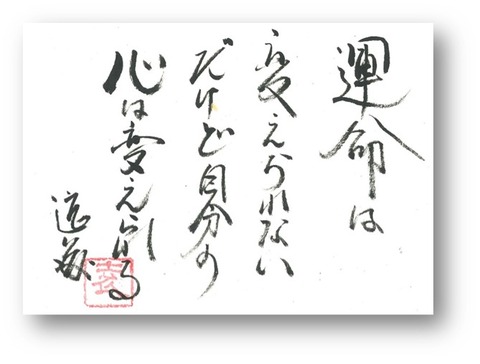 運命は
変えられない
だけど自分の
心は変えられる